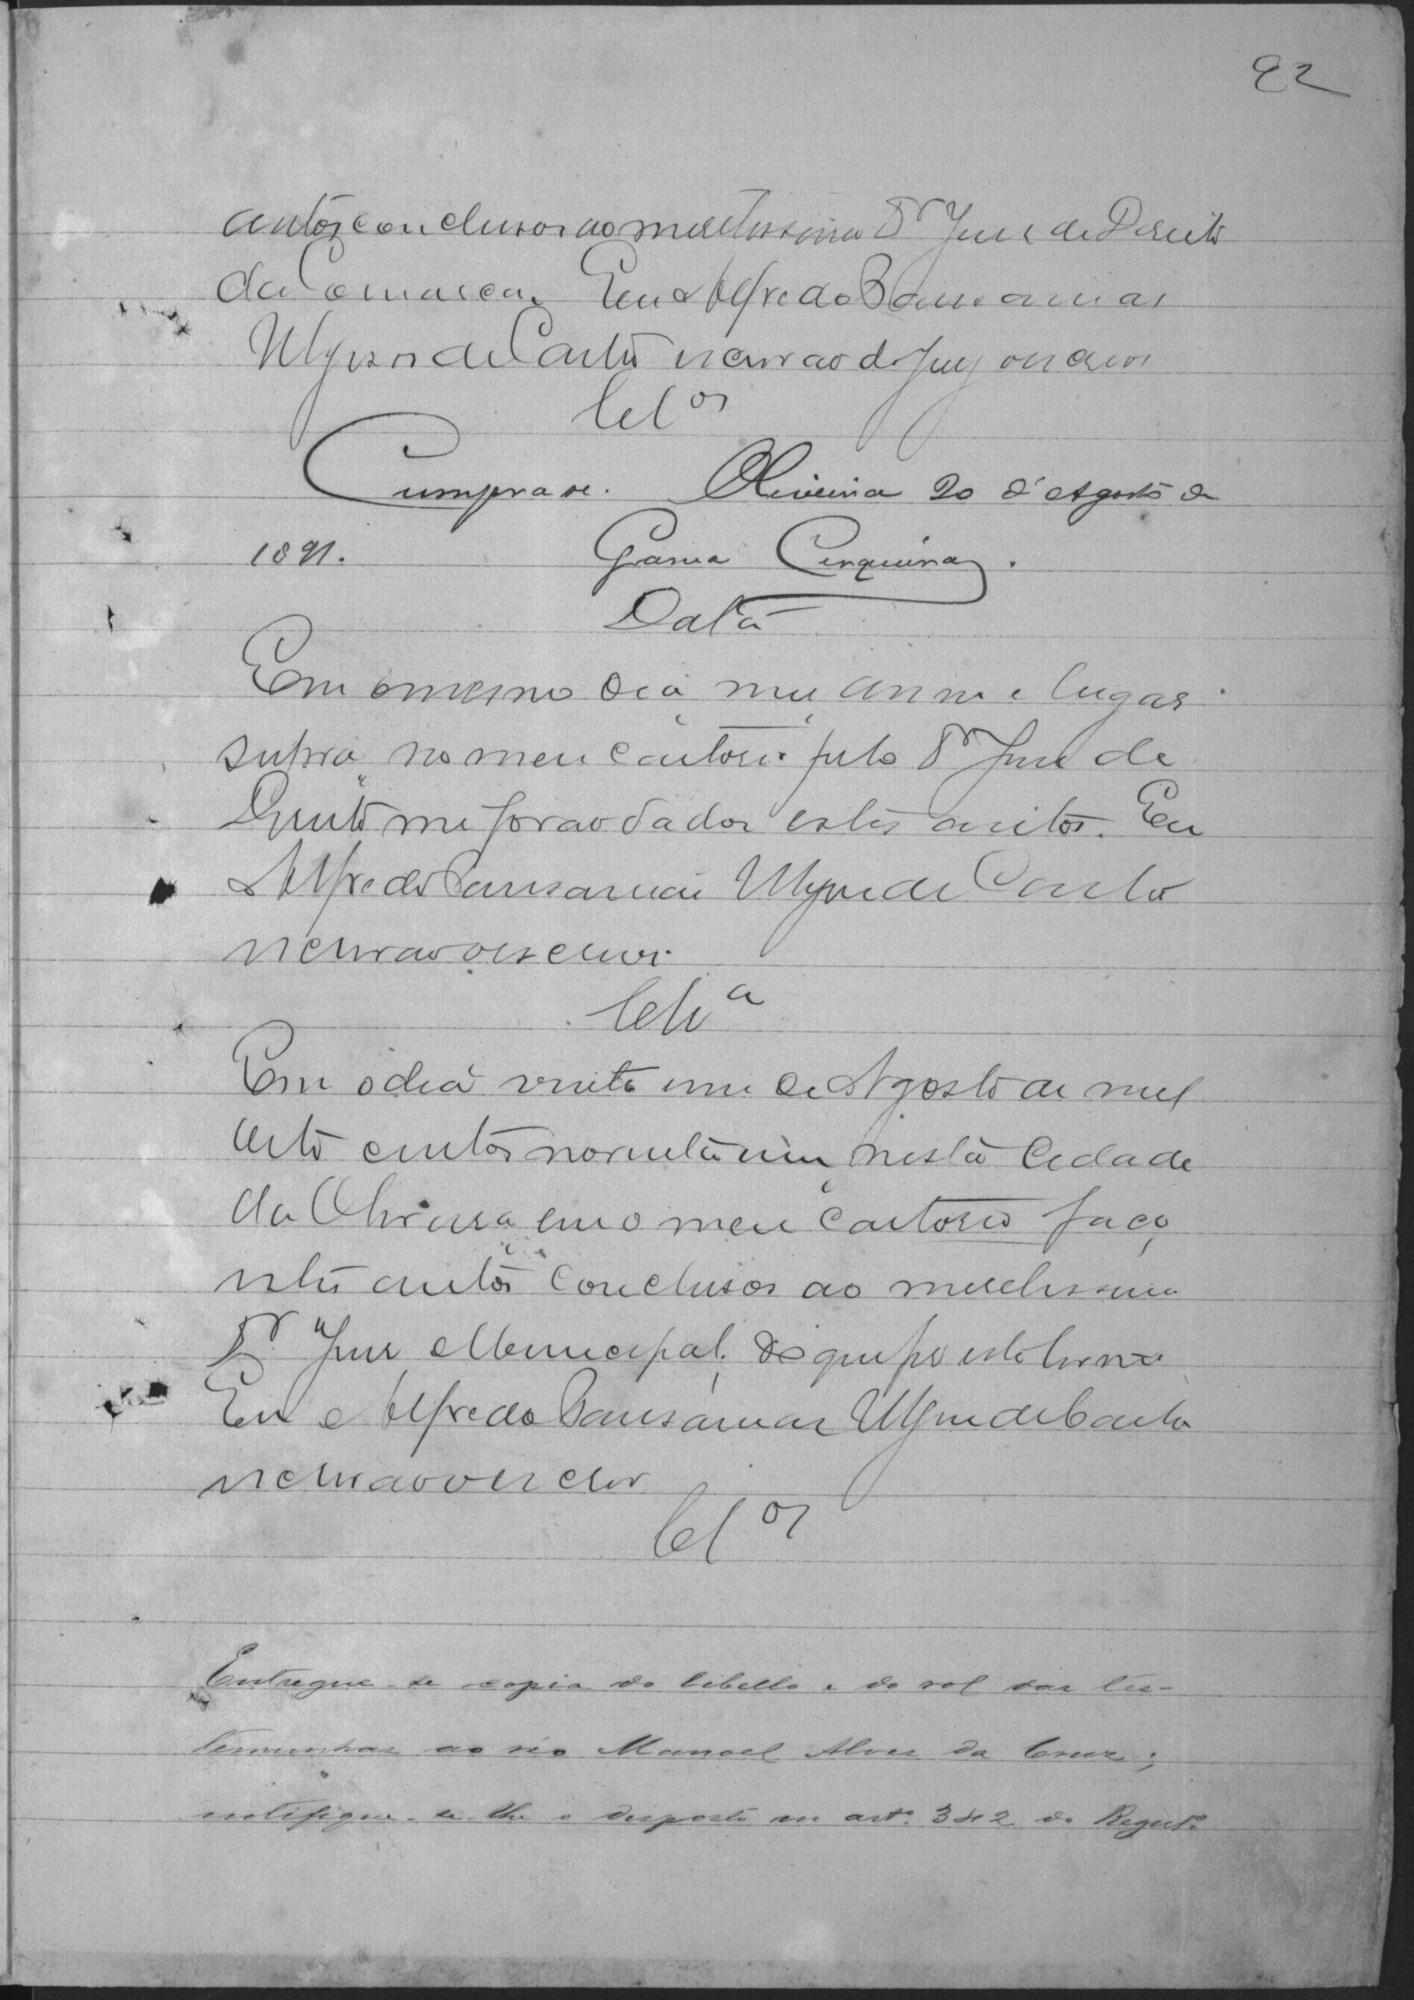 92
autos conclusos ao meretissimo Dr Juiz de Dereito
da Comarca. Eu Alfredo
de Castro escrivão do Jury o escrevi
Clos
Cumpra se. Oliveira 20 d'Agosto de
1891. Gama Cerqueira.
Data
Em o mesmo dia mez anno e lugar
supra no meu cartorio pelo Dr Juiz de
Dereito me forão dados estes autos. Eu
Alfredo de Castro
escrivão o escrevi.
Clsa
Em o dia vinte um de Agosto de mil
oito centos noventa um nesta Cidade
da Oliveira em o meu cartorio faço
estes autos conclusos ao meretissimo
Dr. Juiz Municipal, do que fiz este termo
Eu Alfredo de Castro
escrivão o escrevi
Clos
Entregue-se copia do libello e do rol das tes-
temunhas ao réo Manoel Alves da Cruz;
notifique-se-lhe o disposto no arto. 342 do Regulo.